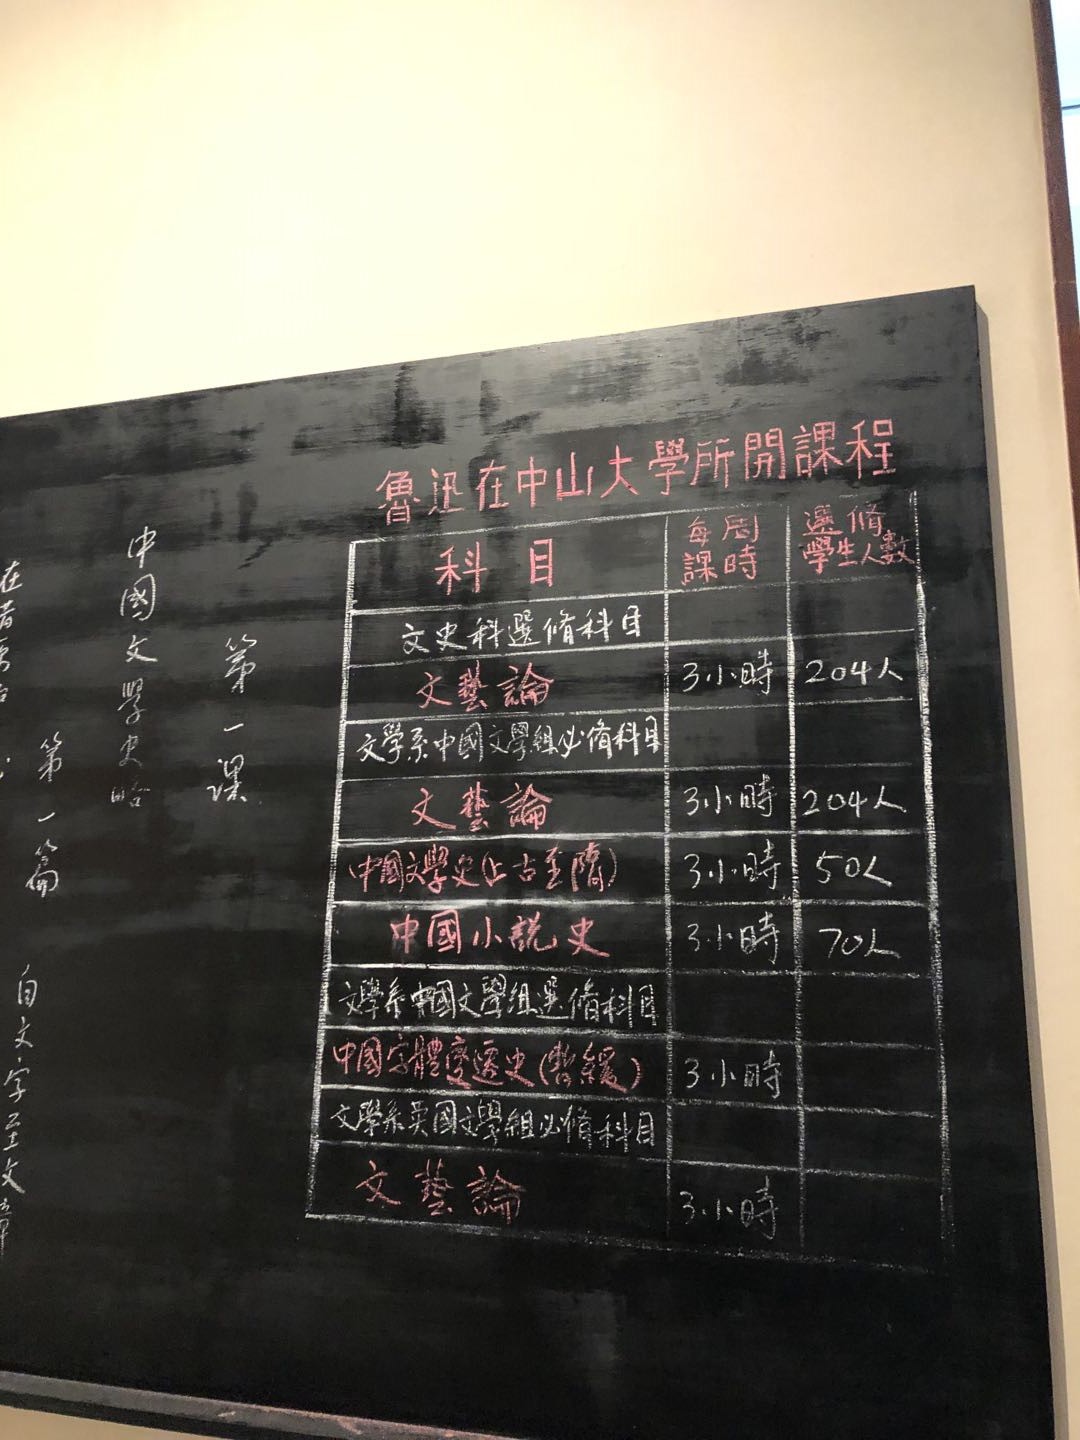 魯迅在中山大學所開課程
科目 每周課時 選修學生人數
文史科選修科目
文藝論 3小時 204人
文學系中國文學組必修科目
文藝論 3小時 204人
中國文學史(上古至隋) 3小時 50人
中國小說史 3小時 70人
文學系中國文學組選修科目
中國字體變遷史(暫緩) 3小時
文學系英國文學組必修科目
文藝論 3小時
第一课
中國文學史略
第一篇 自文字至文章
在昔原始